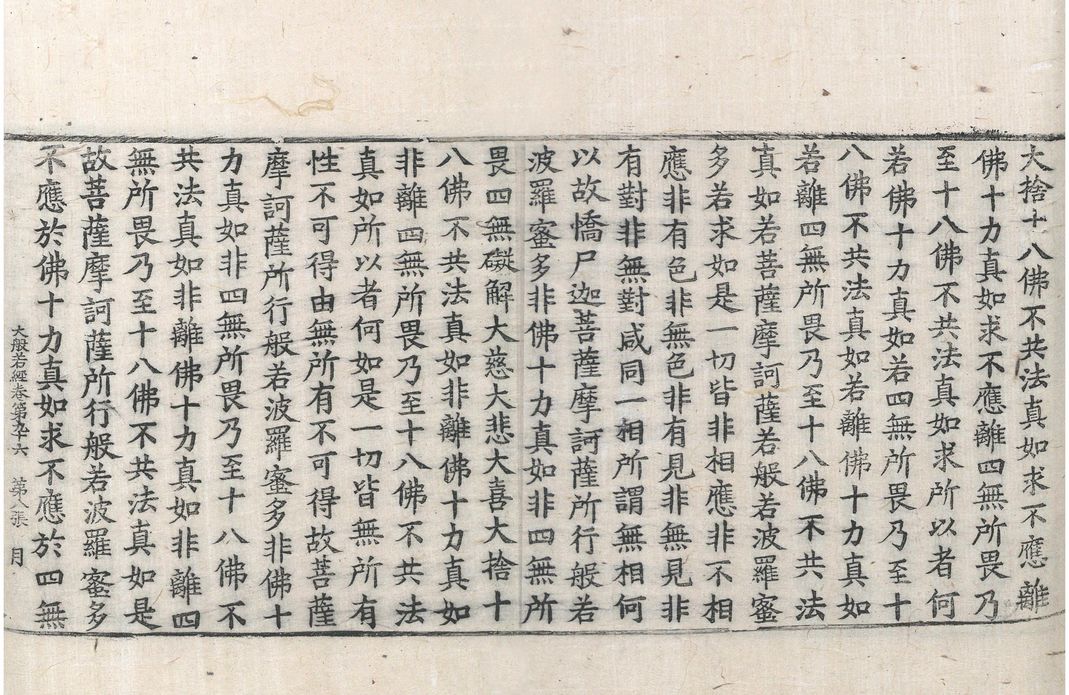 大捨十八佛不共法真如求不應離
佛十力真如求不應離四無所畏乃
至十八佛不共法真如求所以者何
若佛十力真如若四無所畏乃至十
八佛不共法真如若離佛十力真如
若離四無所畏乃至十八佛不共法
真如若菩薩摩訶薩若般若波羅蜜
多若求如是一切皆非相應非不相
應非有色非無色非有見非無見非
有對非無對咸同一相所謂無相何
以故憍尸迦菩薩摩訶薩所行般若
波羅蜜多非佛十力真如非四無所
畏四無礙解大慈大悲大喜大捨十
八佛不共法真如非離佛十力真如
非離四無所畏乃至十八佛不共法
真如所以者何如是一切皆無所有
性不可得由無所有不可得故菩薩
摩訶薩所行般若波羅蜜多非佛十
力真如非四無所畏乃至十八佛不
共法真如非離佛十力真如非離四
無所畏乃至十八佛不共法真如是
故菩薩摩訶薩所行般若波羅蜜多
不應於佛十力真如求不應於四無
大般若經卷第九十六 第八張 月